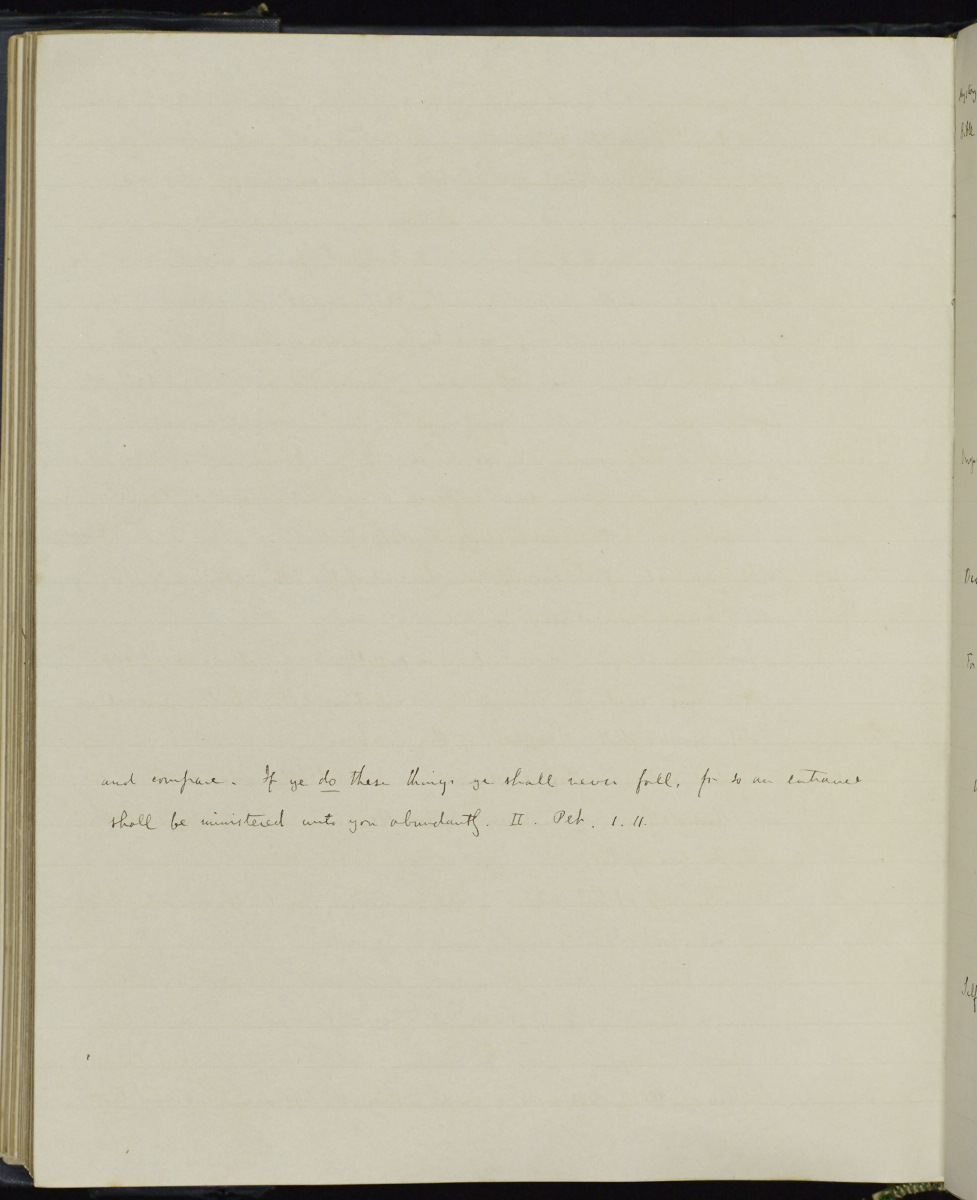 and compare. If ye do these things ye shall never fall, for so an entrance
shall be ministered unto you abundantly. II. Pet. 1. 11.